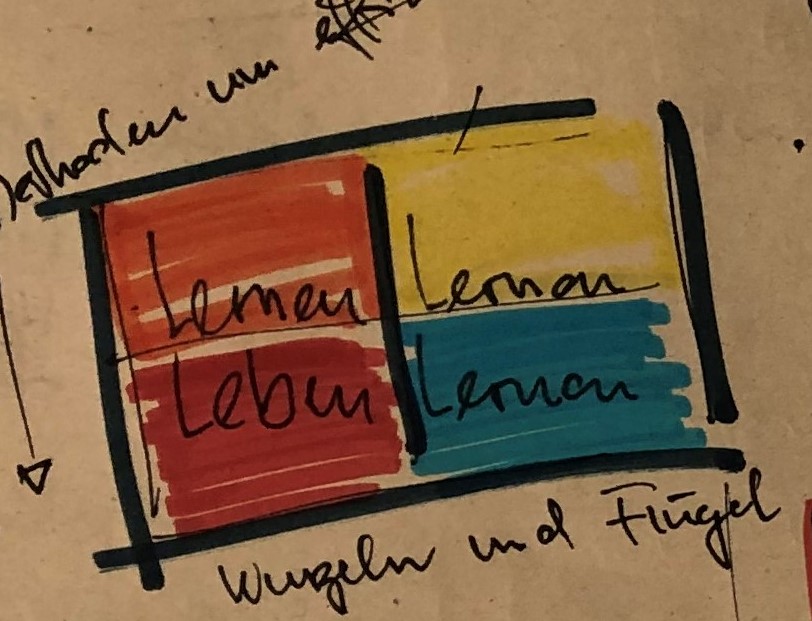 um
Lernen Lernen
Leben Lernen
Wurzeln und Flügel